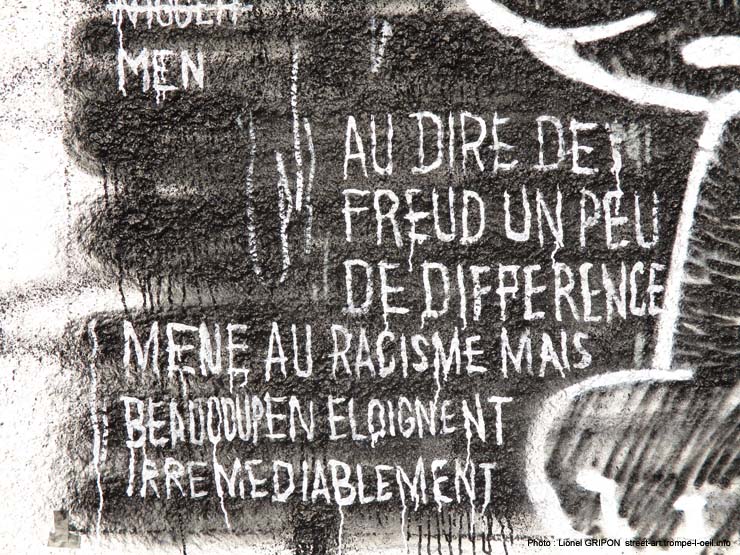 MEN
AU DIRE DE
FREUD UN PEU
DE DIFFERENCE
MENE AU RACISME MAIS
BEAUCOUP EN ELOIGNENT
IRREMEDIABLEMENT
Photo : Lionel GRIPON street-art.trompe-l-oeil.info